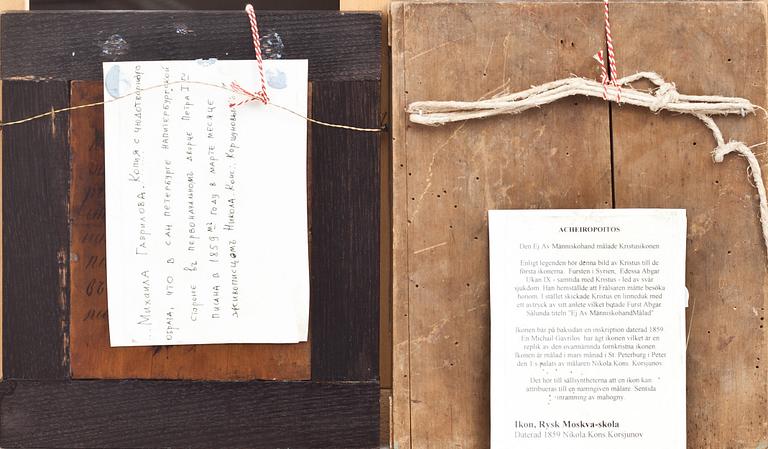 ...Михаила Гаврилова. Копия с чюдотворнаго
образа, что в Сан Петербурге на Питербургской
стороне въ первоначальномъ дворце Петра I го
писана в 1859 мъ году в марте месяце
живописцомъ Никола. Конс. Коршуновымъ
ACHEIROPOITOS
Den Ej Av Människohand målade Kristusikonen
Enligt legenden hör denna bild av Kristus till de
första ikonerna. Fursten i Syrien, Edessa Abgar
Ukan IX - samtida med Kristus - led av svår
sjukdom. Han hemställde att Frälsaren måtte besöka
honom. I stället skickade Kristus en linneduk med
ett avtryck av sitt anlete vilket botade Furst Abgar.
Sålunda titeln "Ej Av MänniskohandMålad"
Ikonen bär på baksidan en inskription daterad 1859
En Michail Gavrilos har ägt ikonen vilket är en
replik av den ovannämnda fornkristna ikonen
Ikonen är målad i mars månad i St. Peterburg i Peter
den I:s palats av målaren Nikola Kons. Korsjunov.
Det hör till sällsyntheterna att en ikon kan
attribueras till en namngiven målare. Sentida
inramning av mahogny.
Ikon, Rysk Moskva-skola
Daterad 1859 Nikola Kons.Korsjunov